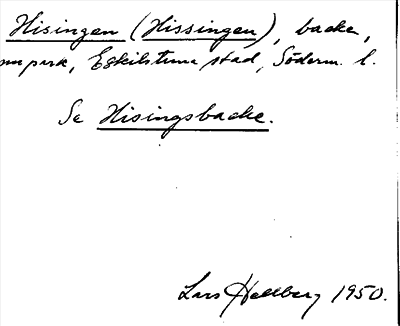 Hisingen (Hissingen), backe,
park, Eskilstuna stad, Söderm. l.
Se Hisingsbacke.
Lars Hellberg 1950.